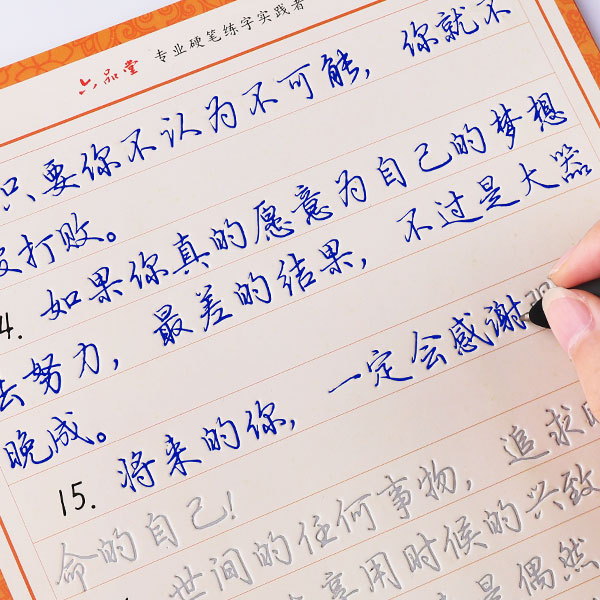 六品堂 专业硬笔练字实践者
只要你不认为不可能，你就不
打败。
4. 如果你真的愿意为自己的梦想
去努力，最差的结果，不过是大器
晚成。
15. 将来的你，一定会感谢
命的自己！
世间的任何事物，追求时
享用时候的兴致
是偶然